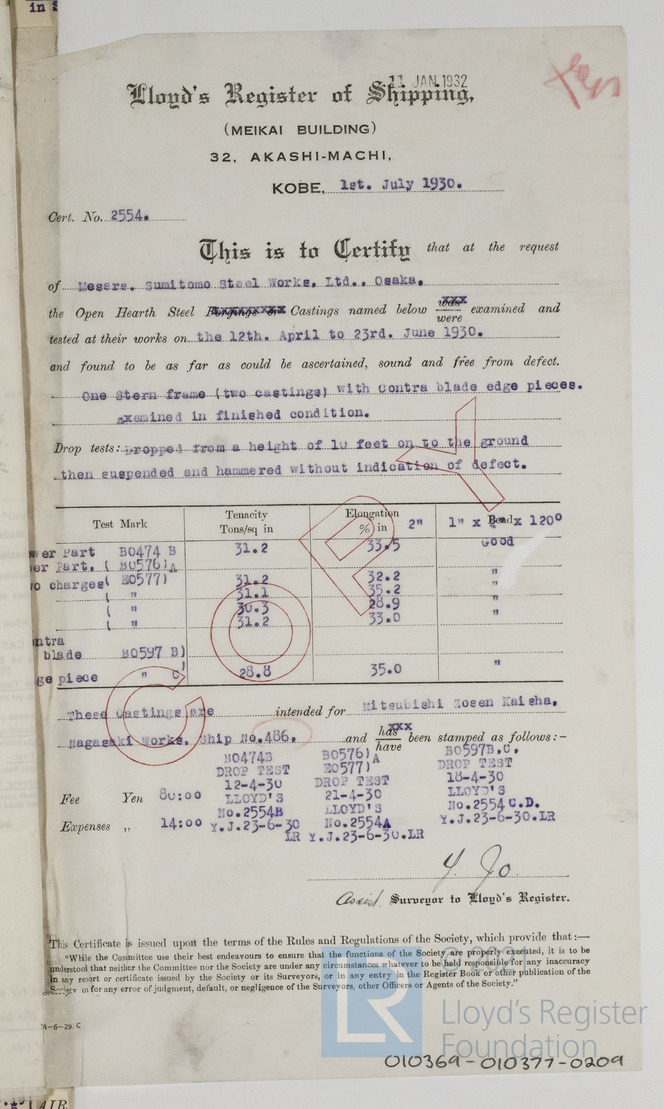 in S
11 JAN.1932
Lloyd's Register of Shipping,
(MEIKAI BUILDING)
32, AKASHI-MACHI,
KOBE, 1st. July 1930.
Cert. No. 2554.
This is to Certify that at the request
of Messrs. Sumitomo Steel Works, Ltd., Osaka.
the Open Hearth Steel Forgings or Castings named below was were examined and
tested at their works on the 12th. April to 23rd. June 1930.
and found to be as far as could be ascertained, sound and free from defect.
One Stern frame (two castings) with contra blade edge pieces.
Examined in finished condition.
Drop tests: Dropped from a height of 10 feet on to the ground
then suspended and hammered without indication of defect.
Test Mark Tenacity Tons/sq in Elongation % in 2" 1" x Bend x 120°
wer Part B0474 B 31.2 33.5 Good
er Part. ( B0576)A
o charges( E0577) 31.2 32.2 "
( " 31.1 35.2 "
( " 30.3 28.9 "
( " 31.2 33.0 "
ntra
blade B0597 B)
ge piece " C) 28.8 35.0 "
These Castings are intended for Mitsubishi Zosen Kaisha,
Nagasaki Works, Ship No.486. and has xxx have been stamped as follows:-
B0474B B0576)A B0597B.C.
DROP TEST E0577) DROP TEST
12-4-30 DROP TEST 18-4-30
Fee Yen 80:00 LLOYD'S 21-4-30 LLOYD'S
No.2554B LLOYD'S No.2554 C.D.
Expenses „ 14:00 Y.J.23-6-30 No.2554A Y.J.23-6-30.LR
LR Y.J.23-6-30.LR
Y. Jo.
Assist. Surveyor to Lloyd's Register.
COPY
This Certificate is issued upon the terms of the Rules and Regulations of the Society, which provide that:—
"While the Committee use their best endeavours to ensure that the functions of the Society are properly executed, it is to be
understood that neither the Committee nor the Society are under any circumstances whatever to be held responsible for any inaccuracy
in any report or certificate issued by the Society or its Surveyors, or in any entry in the Register Book or other publication of the
Society or for any error of judgment, default, or negligence of the Surveyors, other Officers or Agents of the Society."
-6-29. C
© 2021
LR
Lloyd's Register
Foundation
010369-010377-0209
AIR